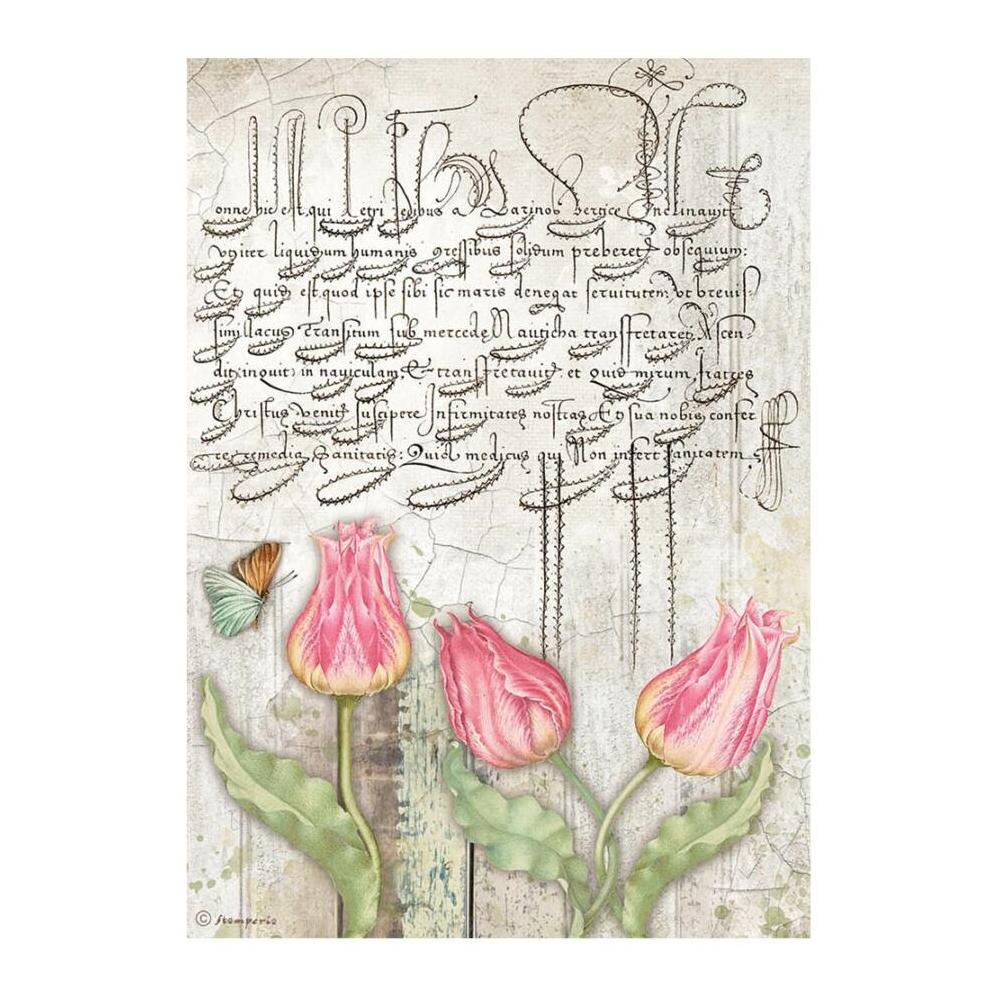 onne hic est, qui Petri pedibus a Marinos Vertice Inclinavit
vniter liquidum humanis gressibus solidum preberet obsequium:
Et quid est, quod ipse sibi sic maris denegat servitutem: vt brevis-
simi lacus Transitum sub mercede Nauticha transfretaret? Ascen-
dit (inquit) in naviculam, & transfretavit: et Quid mirum, fratres
Christus venit suscipere Infirmitates nostras Et sua nobis confer
re remedia Sanitatis: Quia medicus qui Non infert sanitatem
© Stamperia